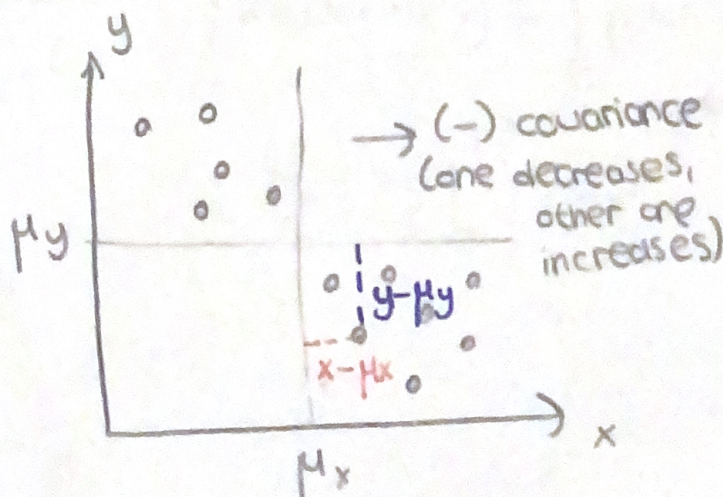 y
→ (-) covariance
(one decreases,
other one
increases)
μy
y-μy
x-μx
x
μx